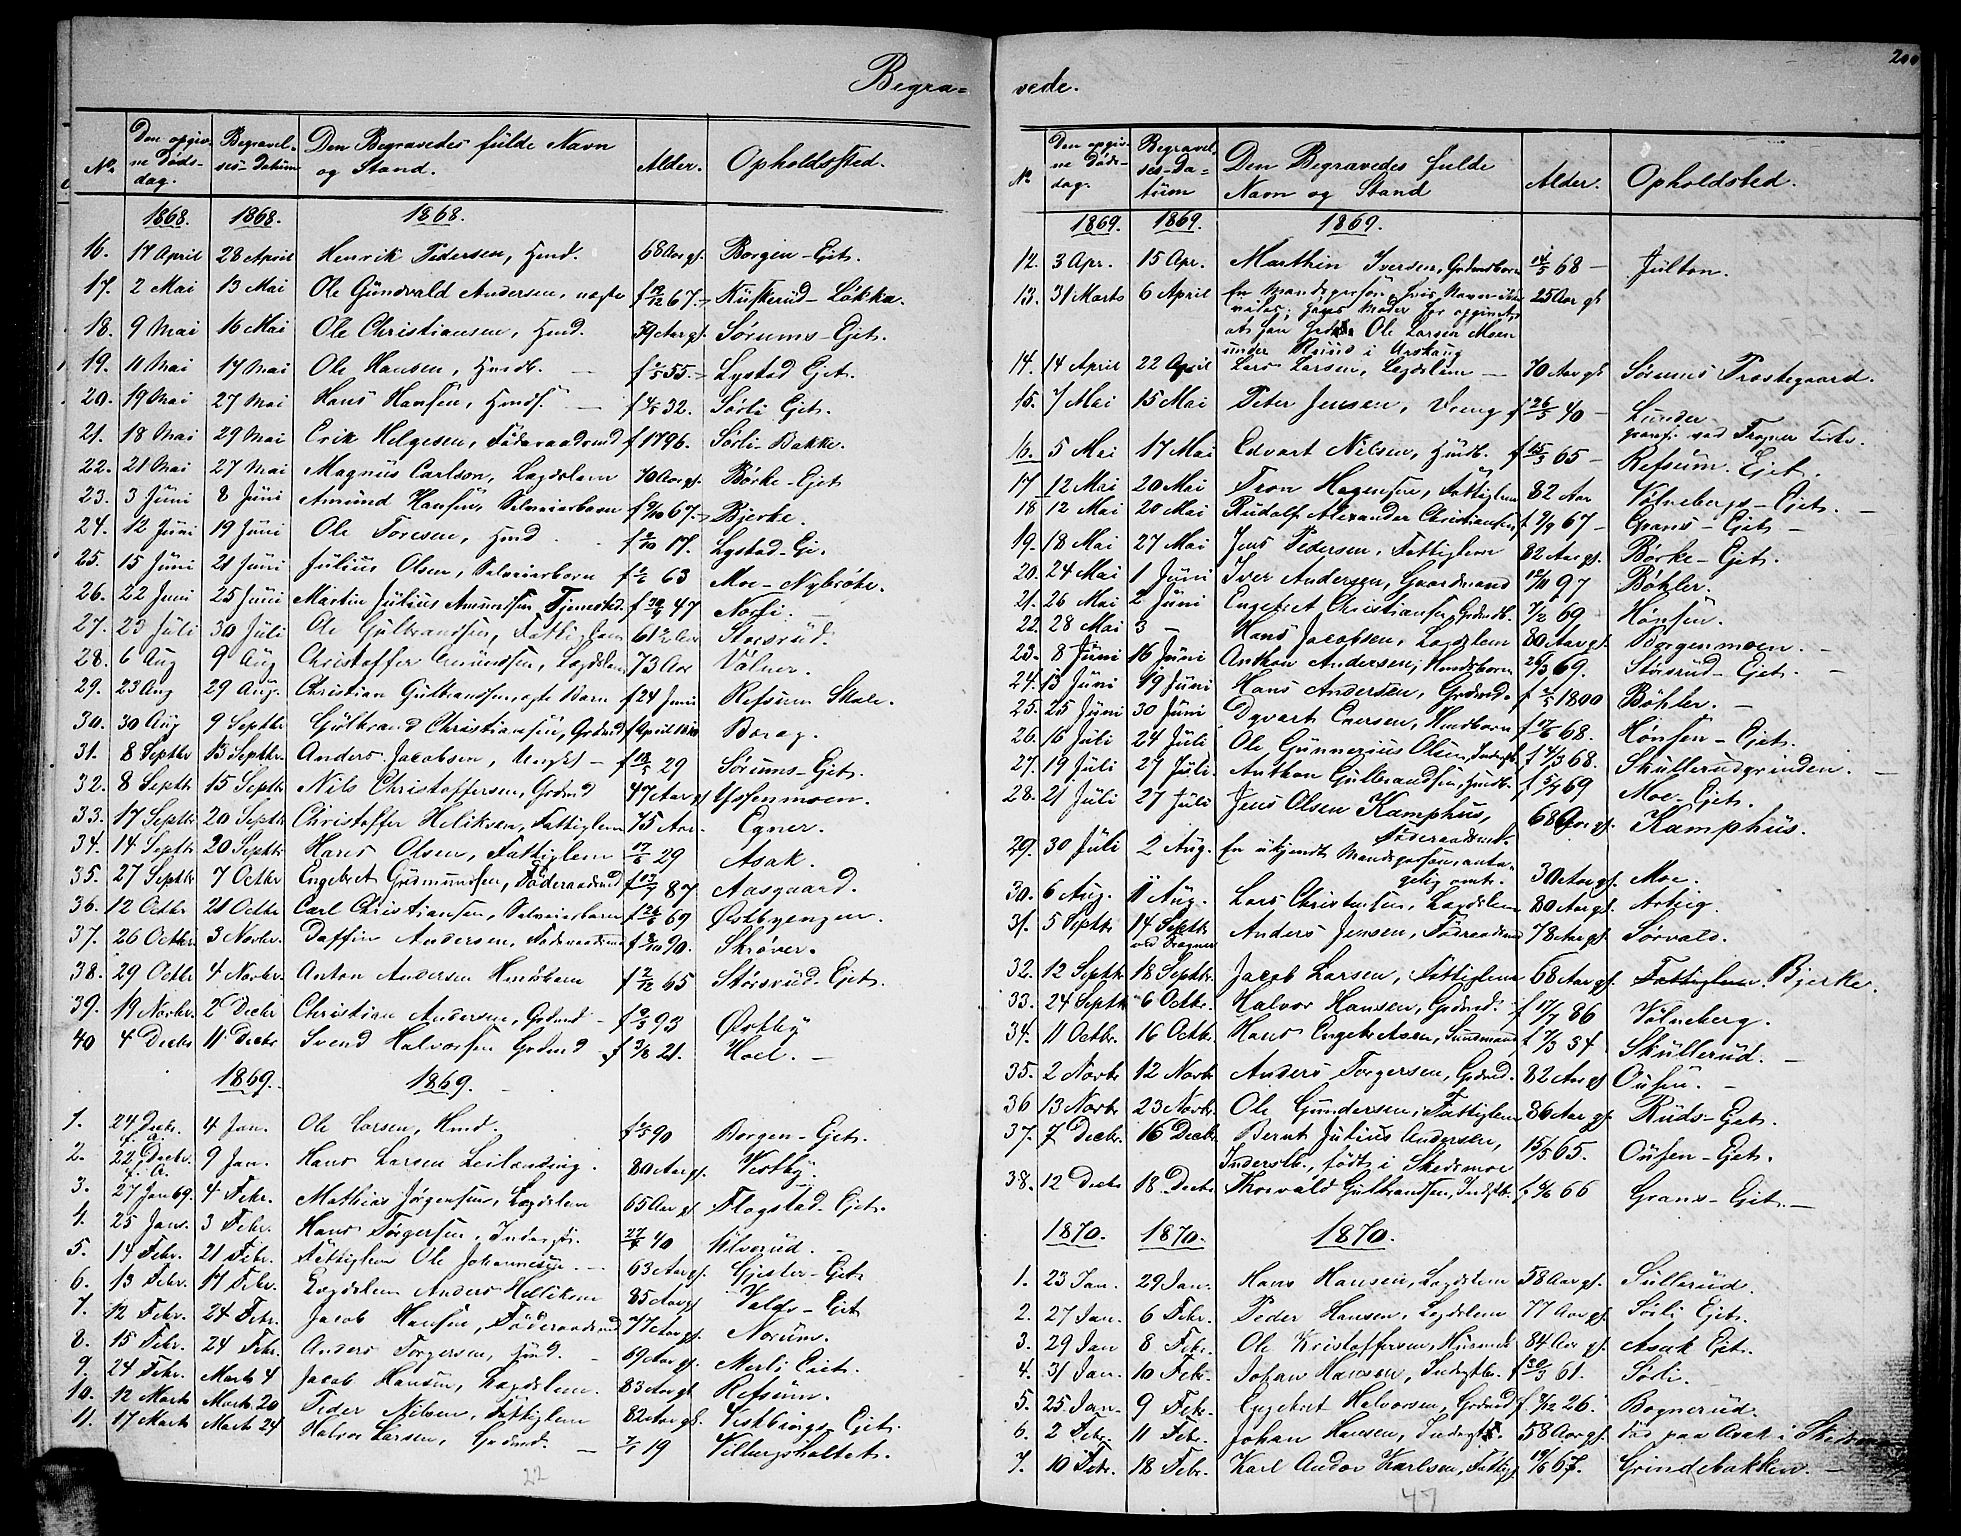 200
Begra=
No. Den opgiv- ne Døds- dag. Begravel- ses-Datum Den Begravedes fulde Navn og Stand. Alder. Opholdssted.
1868. 1868. 1868.
16. 17 April 28 April Henrik Pedersen, Hmd. 68 Aar gl. Borgen-Eget.
17. 2 Mai 13 Mai Ole Gundvald Andersen, uægte 67. Løkka.
18. 9 Mai 16 Mai Ole Christiansen, Hmd. 59 Aar gl. Sørums-Eget.
19. 11 Mai 17 Mai Ole Hansen, f 55. Lystad Eget.
20. 19 Mai 27 Mai Hans Hansen, f 4/5 32. Sørli Eget.
21. 18 Mai 29 Mai Erik Helgesen, Føderaadsmd f 1796. Sørli-Bakke.
22. 21 Mai 27 Mai Magnus Carlson, Lægdslem 70 Aar gl. Børke-Eget
23. 3 Juni 8 Juni Amund Hansen, Selveierbarn f 67. Bjerke.
24. 12 Juni 19 Juni Ole Toresen, Hmd f 17. Lystad-Ei.
25. 15 Juni 21 Juni Julius Olsen, Selveierbarn f 63 Moe-Nybrøte.
26. 22 Juni 25 Juni Martin Julius Amundsen f 47
27. 23 Juli 30 Juli Ole Gulbrandsen, Fattiglem 61 Storsrud.
28. 6 Aug 9 Aug Christoffer Amundsen, Lægdslem 73 Aar Vølner.
29. 23 Aug 29 Aug. Christian Gulbrandsen, ægte Barn f 24 Juni Refsum
30. 30 Aug 9 Septbr Gulbrand Christiansen, Grdmd f April Borag.
31. 8 Septbr 13 Septbr. Anders Jacobsen, Ungkl - f 29 Sørums-Eget.
32. 8 Septbr 15 Septbr Nils Christoffersen, Grdmd 47 Aar gl
33. 17 Septbr 20 Septbr Christoffer Heliksen, Fattiglem 75 Aar. Egner.
34. 14 Septbr 20 Septbr Hans Olsen, Fattiglem 17/6 29 Asak.
35. 27 Septbr 7 Octbr Engebret Gudmundsen, Føderaadsmd f 87 Aasgaard.
36. 12 Octbr 21 Octbr Carl Christiansen, Selveierbarn f 69 Østbyengen.
37. 26 Octbr 3 Novbr. Daffin Andersen, Føderaadsmd f 90. Skrøver.
38. 29 Octbr 4 Novbr. Anton Andersen Hmdsbarn f 2/12 65 Storsrud-Eget.
39. 19 Novbr. 2 Decbr Christian Andersen, Grdmd - f 93 Østby
40 4 Decbr 11 Decbr Svend Halvorsen Grdmd f 21. Hoel.
1869. 1869.
1. 24 Decbr. f.a. 4 Jan. Ole Larsen, Hmd. f 90 Borgen-Eget.
2. 22 Decbr. f.A. 9 Jan. Hans Larsen Leilænding. 80 Aar gl. Vestby
3. 27 Jan 69. 4 Febr. Mathias Jørgensen, Lægdslem 65 Aar gl Flogstad-Eget.
4. 25 Jan. 3 Febr. Hans Torgersen, Inderst. 40 Ulverud.
5. 14 Febr. 21 Febr. Fattiglem Ole Johannesen. 63 Aar gl. Gjester-Eget
6. 13 Febr. 17 Febr. Lægdslem Anders Helliksen 85 Aar gl Valds-Eget
7. 12 Febr. 24 Febr. Jacob Hansen, Føderaadsmd 77 Aar gl. Norum.
8. 15 Febr. 24 Febr. Anders Torgersen, Hmd. 69 Aar gl. Merli Eget.
9. 24 Febr. Marts 4 Jacob Hansen, Lægdslem. 83 Aar gl. Refsum.
10. 12 Marts Marts 20 Peder Nilsen, Fattiglem 82 Aar gl. Vestbys-Eget.
11. 17 Marts Marts 24 Halvor Larsen, Grdmd. 19
22
vede.
No Den opgiv- ne Døds- dag. Begravel- ses-Da- tum Den Begravedes fulde Navn og Stand Alder. Opholdsted.
1869. 1869. 1869.
12. 3 Apr. 15 Apr. Marthin Iversen, Grdmdsbarn 14/5 68 - Julton.
13. 31 Marts 6 April En Mandsperson, hvis Navn ikke 25 Aar gl
vides; hans Moder har opgivet
at han hed Ole Larsen Moen
under i Urskoug
14. 14 April 22 April Lars Larsen, Lægdslem - 70 Aar gl Sørums Præstegaard.
15. 7 Mai 15 Mai Peter Jensen, Dreng f 26/5 40 - Lunder
ved Frogner Kirke.
16. 5 Mai 17 Mai Edvart Nilsen, Husb. f 15/3 65 - Refsum Eget.
17 12 Mai 20 Mai Tron Hagensen, Fattiglem 82 Aar Vølneberg-Eget.
18 12 Mai 20 Mai Rudolf Alexander Christiansen f 9/9 67 - Grans-Eget -
19. 18 Mai 27 Mai Jens Pedersen, Fattiglem 82 Aar gl. Børke-Eget.
20. 24 Mai 1 Juni Iver Andersen, Gaardmand 97 Bøhler.
21. 26 Mai 2 Juni Engebret Christiansen, Grdmdb. 7/2 69 Hønsen.
22. 28 Mai 3 - Hans Jacobsen, Lægdslem 80 Aar gl. Borgenmoen.
23. 8 Juni 16 Juni Anthon Andersen, Hmdsbarn 26/3 69. Storsrud-Eget.
24. 13 Juni 19 Juni Hans Andersen, Grdmd. f 1800 Bøhler.
25. 25 Juni 30 Juni Dyvart Enersen, Hmdbarn f 17/6 68. Hønsen-Eget.
26. 16 Juli 24 Juli Ole Gunnerius Olsen, f 4/3 68. Skullerudgrinden.
27. 19 Juli 27 Juli. Anthon Gulbrandsen, Husb. f 5/4 69 Moe-Eget.
28. 21 Juli 27 Juli Jens Olsen Kamphus, Føderaadsmd. 68 Aar gl. Kamphus.
29. 30 Juli 2 Aug. En ukjendt Mandsperson, anta- gelig omtr. 30 Aar gl. Moe.
30. 6 Aug. 11 Aug. Lars Christensen, Lægdslem 80 Aar gl. Arteig.
31. 5 Septbr 14 Septbr ved Frogner Anders Jensen, Føderaadsmd 78 Aar gl. Sørvald.
32. 12 Septbr. 18 Septbr. Jacob Larsen, Fattiglem 68 Aar gl. Fattiglem Bjerke.
33. 24 Septbr. 6 Octbr. Halvor Hansen, Grdmd. f 17/7 86 Vølneberg.
34. 11 Octbr. 16 Octbr. Hans Engebretsen, f 17/3 34 Skullerud.
35. 2 Novbr 12 Novbr Anders Torgersen, Grdmd. 82 Aar gl Ousen.
36 13 Novbr. 23 Novbr. Ole Gundersen, Fattiglem 86 Aar gl. Ruds-Eget.
37. 7 Decbr. 16 Decbr Bernt Julius Andersen, Inderstb., født i Skedsmoe 15/5 65. Ousen-Eget.
38. 12 Decbr 18 Decbr Thorvald Gulbrandsen, Indstb. f. 66 Grans-Eget.
1870. 1870. 1870.
1. 23 Jan. 29 Jan. Hans Hansen, Lægdslem 58 Aar gl. Sullerud.
2. 27 Jan. 6 Febr. Peder Hansen, Lægdslem 77 Aar gl. Sørli Eget.
3. 29 Jan 8 Febr. Ole Kristoffersen, Husmd 84 Aar gl. Asak Eget.
4. 31 Jan. 10 Febr. Johan Hansen, Inderstbr. f 30/3 61. Sørli.
5. 25 Jan. 9 Febr. Engebret Halvorsen, Grdmd f. 26. Bognerud.
6. 2 Febr. 11 Febr. Johan Hansen, Inderst 58 Aar gl. død paa Asak i
7. 10 Febr. 18 Febr. Karl Andor Karlsen, 19/6 67. Grindebakken.
47